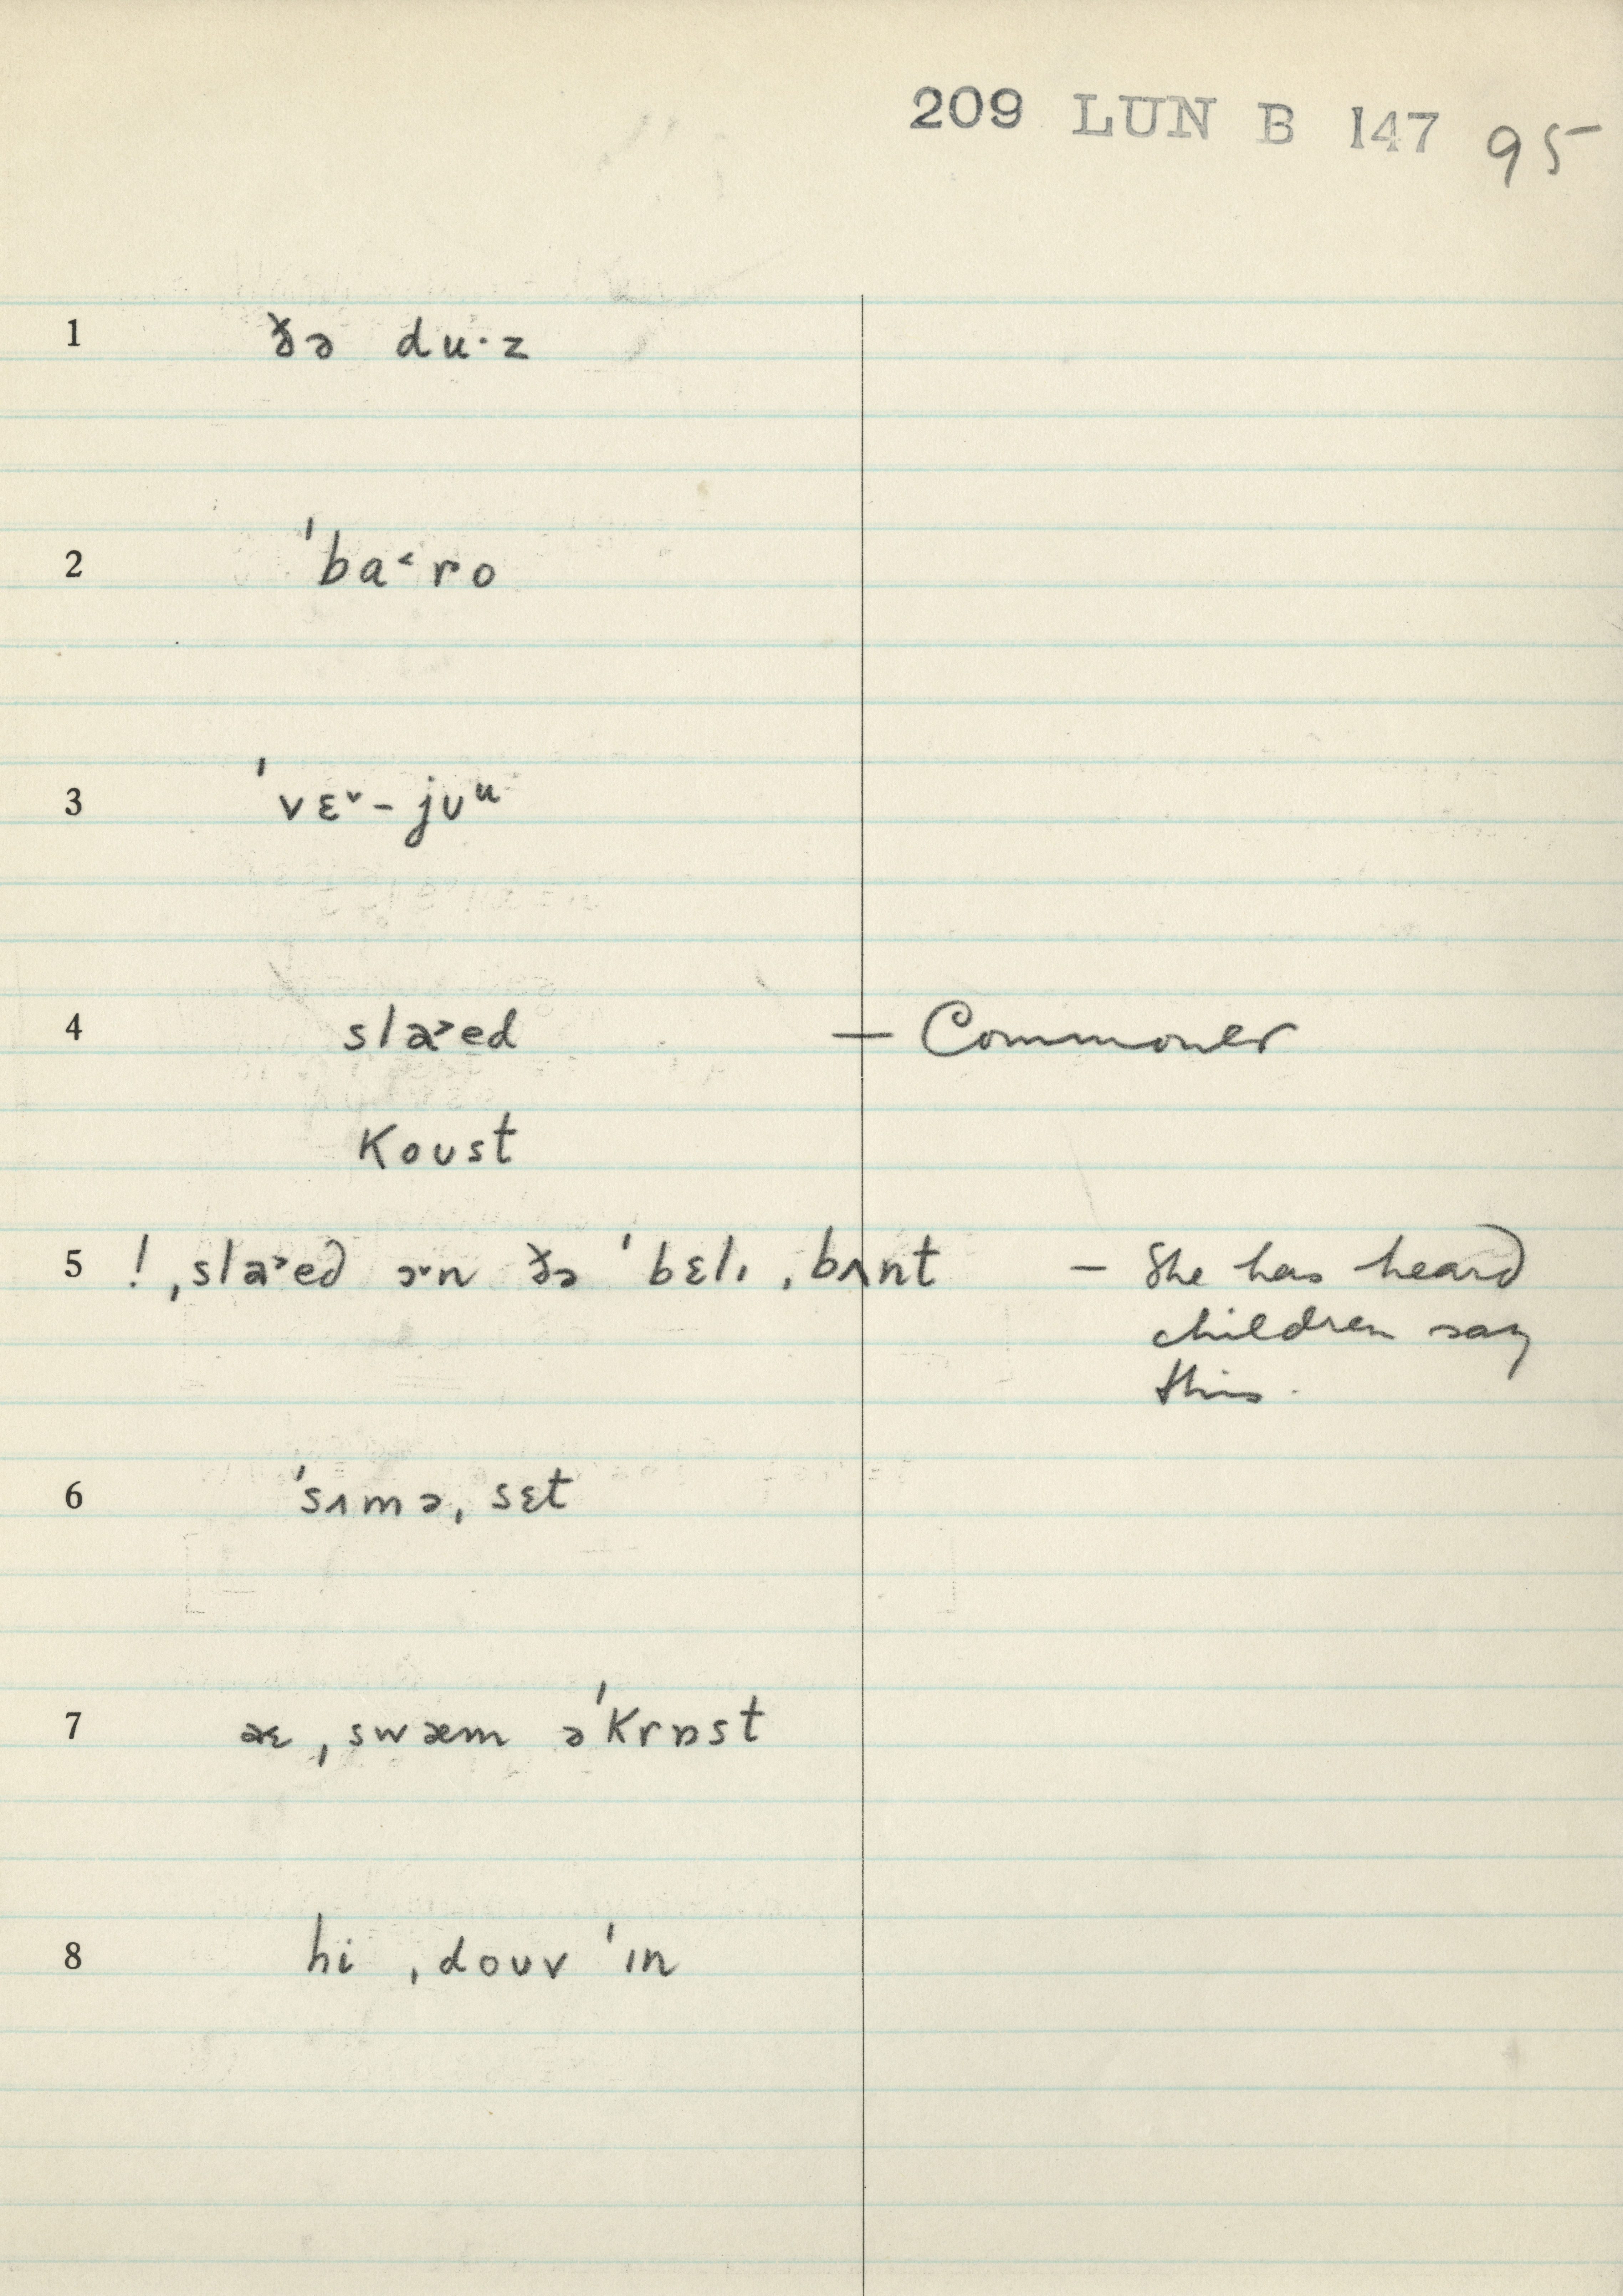 209 LUN B 147 95
1 ðə du·z
2 ˈba˂ro
3 ˈvɛ˅-jʊᵘ
4 sla˃ed — Commoner
koust
5 ! ˌsla˃ed ɔ˅n ðə ˈbɛlɪ ˌbʌnt — She has heard
children say
this.
6 ˈsʌmə ˌsɛt
7 æɛ ˌswæm əˈkrɒst
8 hi ˌdouv ˈɪn